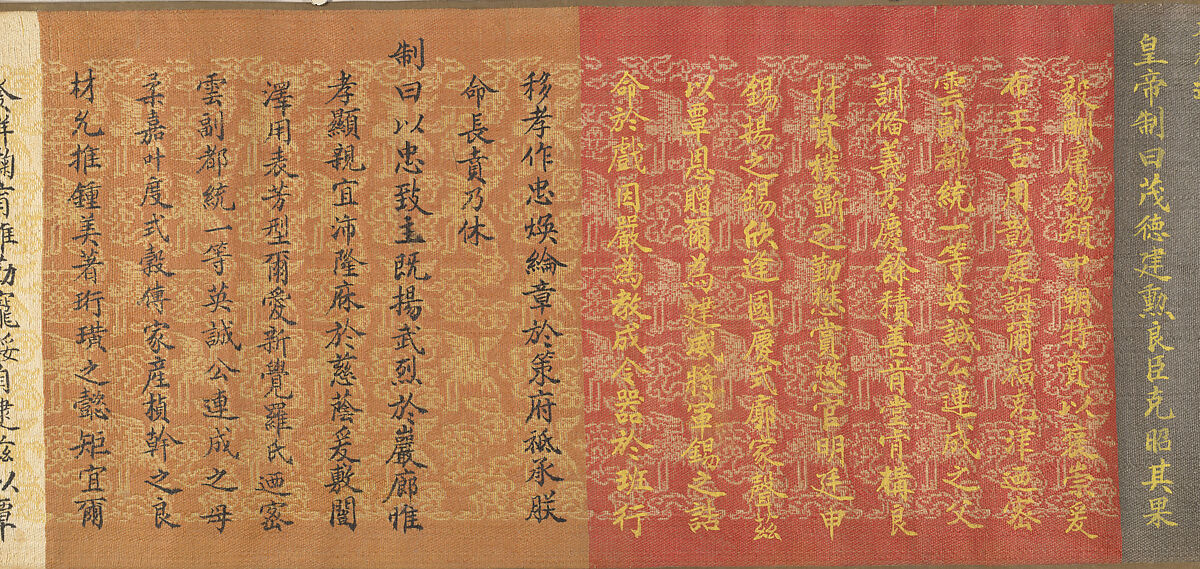 皇帝制曰茂德建勲良臣克昭其果
毅酬庸錫類中朝特賁以褒崇爰
布王言用彰庭誨爾福克津迺密
雲副都統一等英誠公連成之父
訓偹義方慶餘積善肯堂肯構良
材資樸斲之勤懋賞懋官明廷申
錫揚之錫欣逢國慶式廓家聲兹
以覃恩贈爾為建威將軍錫之誥
命於戲因嚴為教成令器於班行
移孝作忠煥綸章於策府祗承朕
命長賁乃休
制曰以忠致主既揚武烈於巖廊惟
孝顯親宜沛隆庥於慈蔭爰敷閫
澤用表芳型爾愛新覺羅氏迺密
雲副都統一等英誠公連成之母
柔嘉叶度式穀傳家產楨幹之良
材允推鍾美著珩璜之懿矩宜爾
發祥鞠育維勤寵綏自逮兹以覃